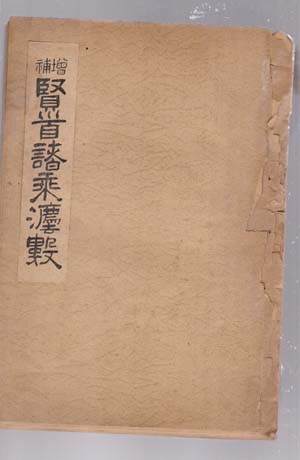 增補
賢首諸乘灋數